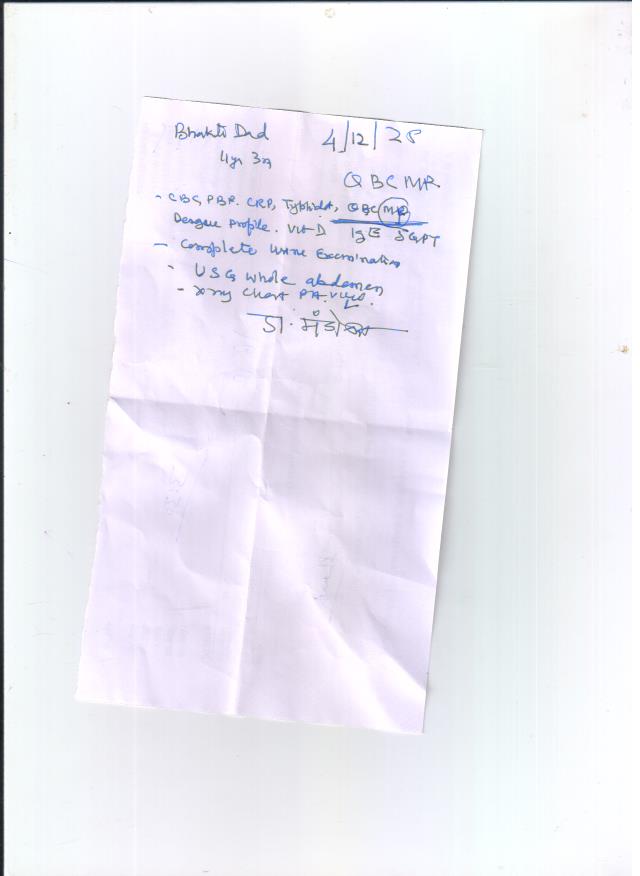 Bhakti Dad 4/12/25
4yr 3m
QBC MP
- CBC, PBF. CRP, Typhidot, QBC MP
Dengue Profile. Vit-D IgE SGPT
- Complete Urine Examination
- USG whole abdomen
- xray chest PA view.
डा.